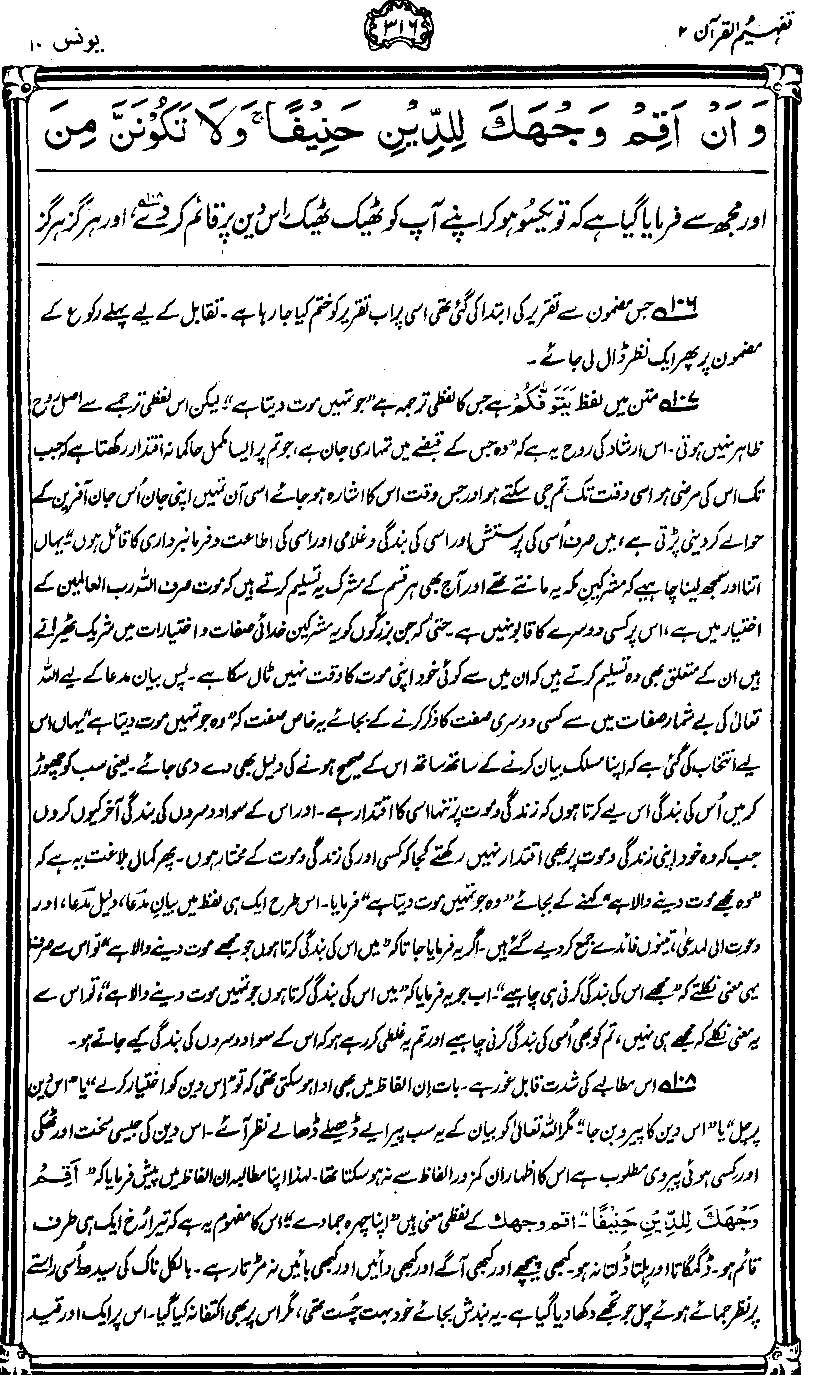 تفہیم القرآن ۲
۳۱۶
یونس ۱۰
وَاَنْ اَقِمْ وَجْهَكَ لِلدِّيْنِ حَنِيْفًا ۚ وَلَا تَكُوْنَنَّ مِنَ
اور مجھ سے فرمایا گیا ہے کہ تو یکسو ہو کر اپنے آپ کو ٹھیک ٹھیک اس دین پر قائم کر دے،۱۰۸ اور ہرگز ہرگز
۱۰۶ جس مضمون سے تقریر کی ابتدا کی گئی تھی اسی پر اب تقریر کو ختم کیا جا رہا ہے۔ تقابل کے لیے پہلے رکوع کے
مضمون پر پھر ایک نظر ڈال لی جائے۔
۱۰۷ متن میں لفظ يَتَوَفّٰكُمْ ہے جس کا لفظی ترجمہ ہے ”جو تمہیں موت دیتا ہے“۔ لیکن اس لفظی ترجمے سے اصل روح
ظاہر نہیں ہوتی۔ اس ارشاد کی روح یہ ہے کہ ”وہ جس کے قبضے میں تمہاری جان ہے، جو تم پر ایسا مکمل حاکمانہ اقتدار رکھتا ہے کہ جب
تک اس کی مرضی ہو اسی وقت تک تم جی سکتے ہو اور جس وقت اس کا اشارہ ہو جائے اسی آن تمہیں اپنی جان اُس جان آفرین کے
حوالے کر دینی پڑتی ہے، میں صرف اُسی کی پرستش اور اسی کی بندگی و غلامی اور اسی کی اطاعت و فرمانبرداری کا قائل ہوں“۔ یہاں
اتنا اور سمجھ لینا چاہیے کہ مشرکینِ مکہ یہ مانتے تھے اور آج بھی ہر قسم کے مشرک یہ تسلیم کرتے ہیں کہ موت صرف اللہ رب العالمین کے
اختیار میں ہے، اس پر کسی دوسرے کا قابو نہیں ہے۔ حتیٰ کہ جن بزرگوں کو یہ مشرکین خدائی صفات و اختیارات میں شریک ٹھیراتے
ہیں ان کے متعلق بھی وہ تسلیم کرتے ہیں کہ ان میں سے کوئی خود اپنی موت کا وقت نہیں ٹال سکا ہے۔ پس بیان مدعا کے لیے اللہ
تعالیٰ کی بے شمار صفات میں سے کسی دوسری صفت کا ذکر کرنے کے بجائے یہ خاص صفت کہ ”وہ جو تمہیں موت دیتا ہے“ یہاں اس
لیے انتخاب کی گئی ہے کہ اپنا مسلک بیان کرنے کے ساتھ ساتھ اس کے صحیح ہونے کی دلیل بھی دے دی جائے۔ یعنی سب کو چھوڑ
کر میں اُس کی بندگی اس لیے کرتا ہوں کہ زندگی و موت پر تنہا اسی کا اقتدار ہے۔ اور اس کے سوا دوسروں کی بندگی آخر کیوں کروں
جب کہ وہ خود اپنی زندگی و موت پر بھی اقتدار نہیں رکھتے کجا کہ کسی اور کی زندگی و موت کے مختار ہوں۔ پھر کمال بلاغت یہ ہے کہ
”وہ مجھے موت دینے والا ہے“ کہنے کے بجائے ”وہ جو تمہیں موت دیتا ہے“ فرمایا۔ اس طرح ایک ہی لفظ میں بیانِ مدّعا، دلیلِ مدّعا، اور
دعوت الی المدعیٰ، تینوں فائدے جمع کر دیے گئے ہیں۔ اگر یہ فرمایا جاتا کہ ”میں اس کی بندگی کرتا ہوں جو مجھے موت دینے والا ہے“ تو اس سے صرف
یہی معنی نکلتے کہ ”مجھے اس کی بندگی کرنی ہی چاہیے“۔ اب جو یہ فرمایا کہ ”میں اس کی بندگی کرتا ہوں جو تمہیں موت دینے والا ہے“، تو اس سے
یہ معنی نکلے کہ مجھے ہی نہیں، تم کو بھی اُسی کی بندگی کرنی چاہیے اور تم یہ غلطی کر رہے ہو کہ اس کے سوا دوسروں کی بندگی کیے جاتے ہو۔
۱۰۸ اس مطالبے کی شدت قابل غور ہے۔ بات اِن الفاظ میں بھی ادا ہو سکتی تھی کہ تو ”اِس دین کو اختیار کر لے“ یا ”اس دین
پر چل“ یا ”اس دین کا پیرو بن جا“۔ مگر اللہ تعالیٰ کو بیان کے یہ سب پیرایے ڈھیلے ڈھالے نظر آئے۔ اس دین کی جیسی سخت اور ٹھکی
اور کسی ہوئی پیروی مطلوب ہے اس کا اظہار ان کمزور الفاظ سے نہ ہو سکتا تھا۔ لہذا اپنا مطالبہ ان الفاظ میں پیش فرمایا کہ ”اَقِمْ
وَجْهَكَ لِلدِّيْنِ حَنِيْفًا“۔ اقم وجھک کے لفظی معنی ہیں ”اپنا چہرہ جما دے“۔ اس کا مفہوم یہ ہے کہ تیرا رُخ ایک ہی طرف
قائم ہو۔ ڈگمگاتا اور ہلتا ڈُلتا نہ ہو۔ کبھی پیچھے اور کبھی آگے اور کبھی دائیں اور کبھی بائیں نہ مڑتا رہے۔ بالکل ناک کی سیدھ اُسی راستے
پر نظر جمائے ہوئے چل جو تجھے دکھا دیا گیا ہے۔ یہ بندش بجائے خود بہت چُست تھی، مگر اس پر بھی اکتفا نہ کیا گیا۔ اس پر ایک اور قید